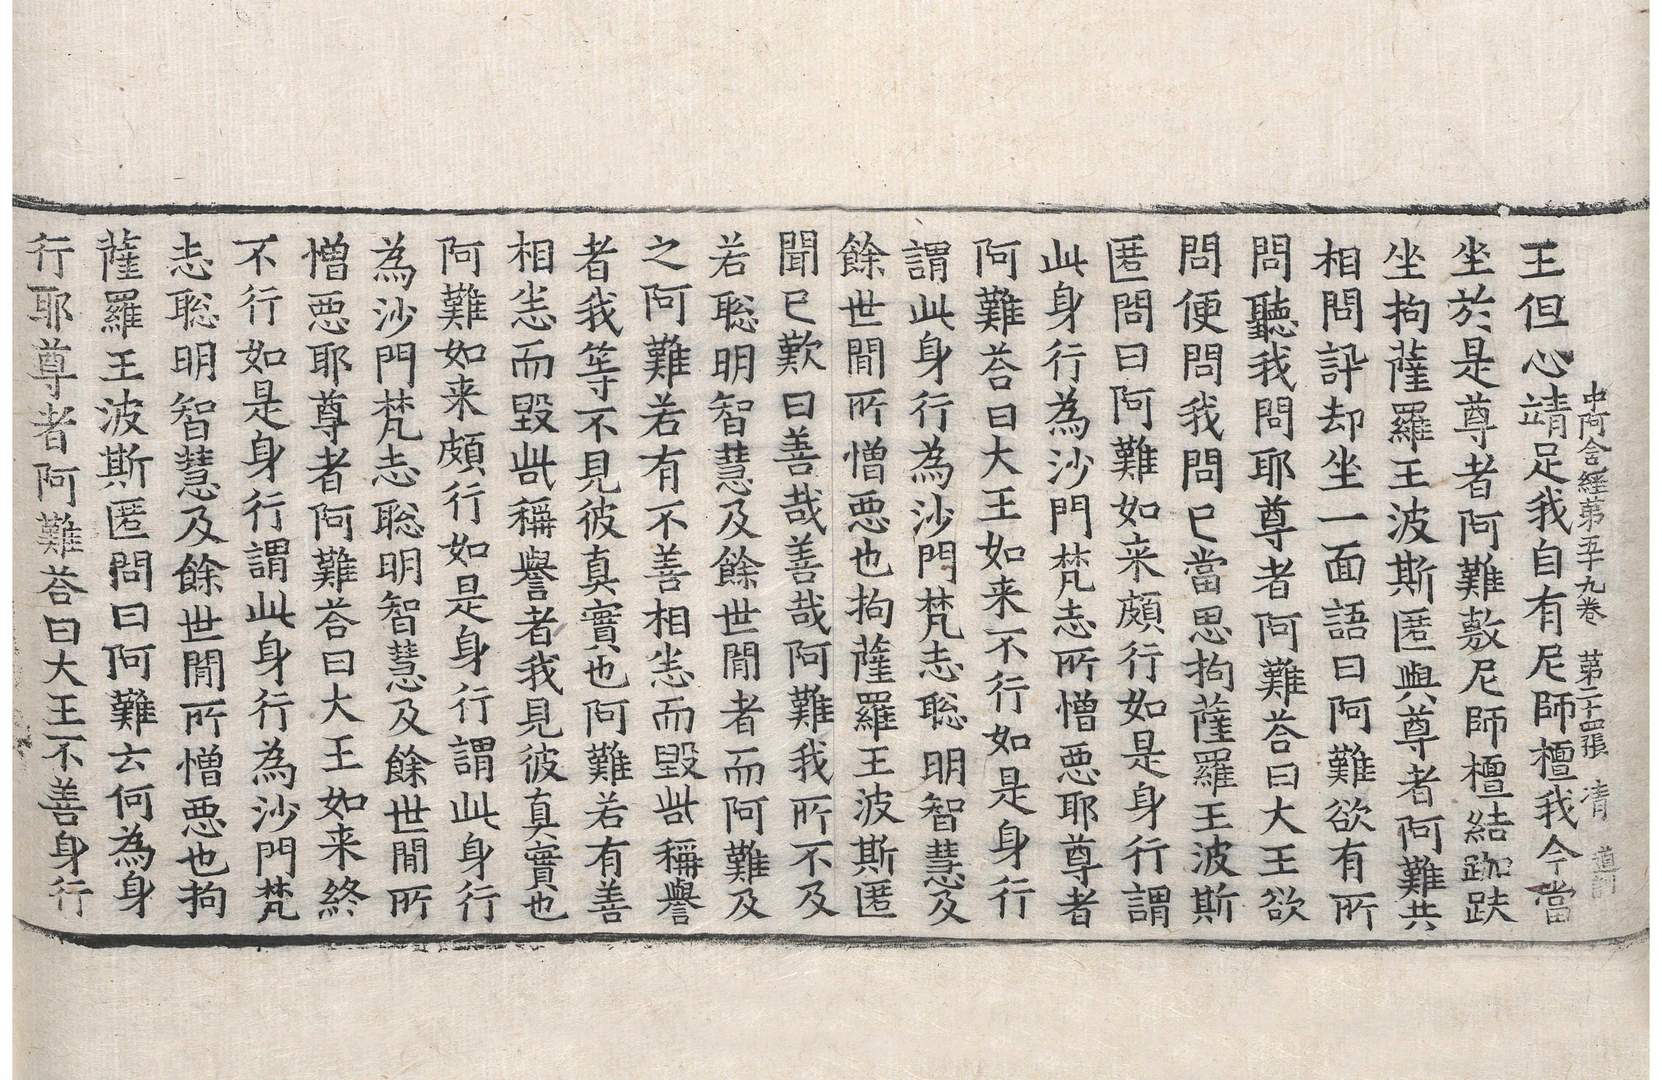 中阿含経第五十九卷　第二十四張　清　道訓
王但心靖足我自有尼師檀我今當
坐於是尊者阿難敷尼師檀結跏趺
坐拘薩羅王波斯匿與尊者阿難共
相問訊却坐一面語曰阿難欲有所
問聽我問耶尊者阿難荅曰大王欲
問便問我問已當思拘薩羅王波斯
匿問曰阿難如来頗行如是身行謂
此身行為沙門梵志所憎惡耶尊者
阿難荅曰大王如来不行如是身行
謂此身行為沙門梵志聡明智慧及
餘世間所憎惡也拘薩羅王波斯匿
聞已歎曰善哉善哉阿難我所不及
若聡明智慧及餘世間者而阿難及
之阿難若有不善相恙而毀呰稱譽
者我等不見彼真實也阿難若有善
相恙而毀呰稱譽者我見彼真實也
阿難如来頗行如是身行謂此身行
為沙門梵志聡明智慧及餘世間所
憎惡耶尊者阿難荅曰大王如来終
不行如是身行謂此身行為沙門梵
志聡明智慧及餘世間所憎惡也拘
薩羅王波斯匿問曰阿難云何為身
行耶尊者阿難荅曰大王不善身行